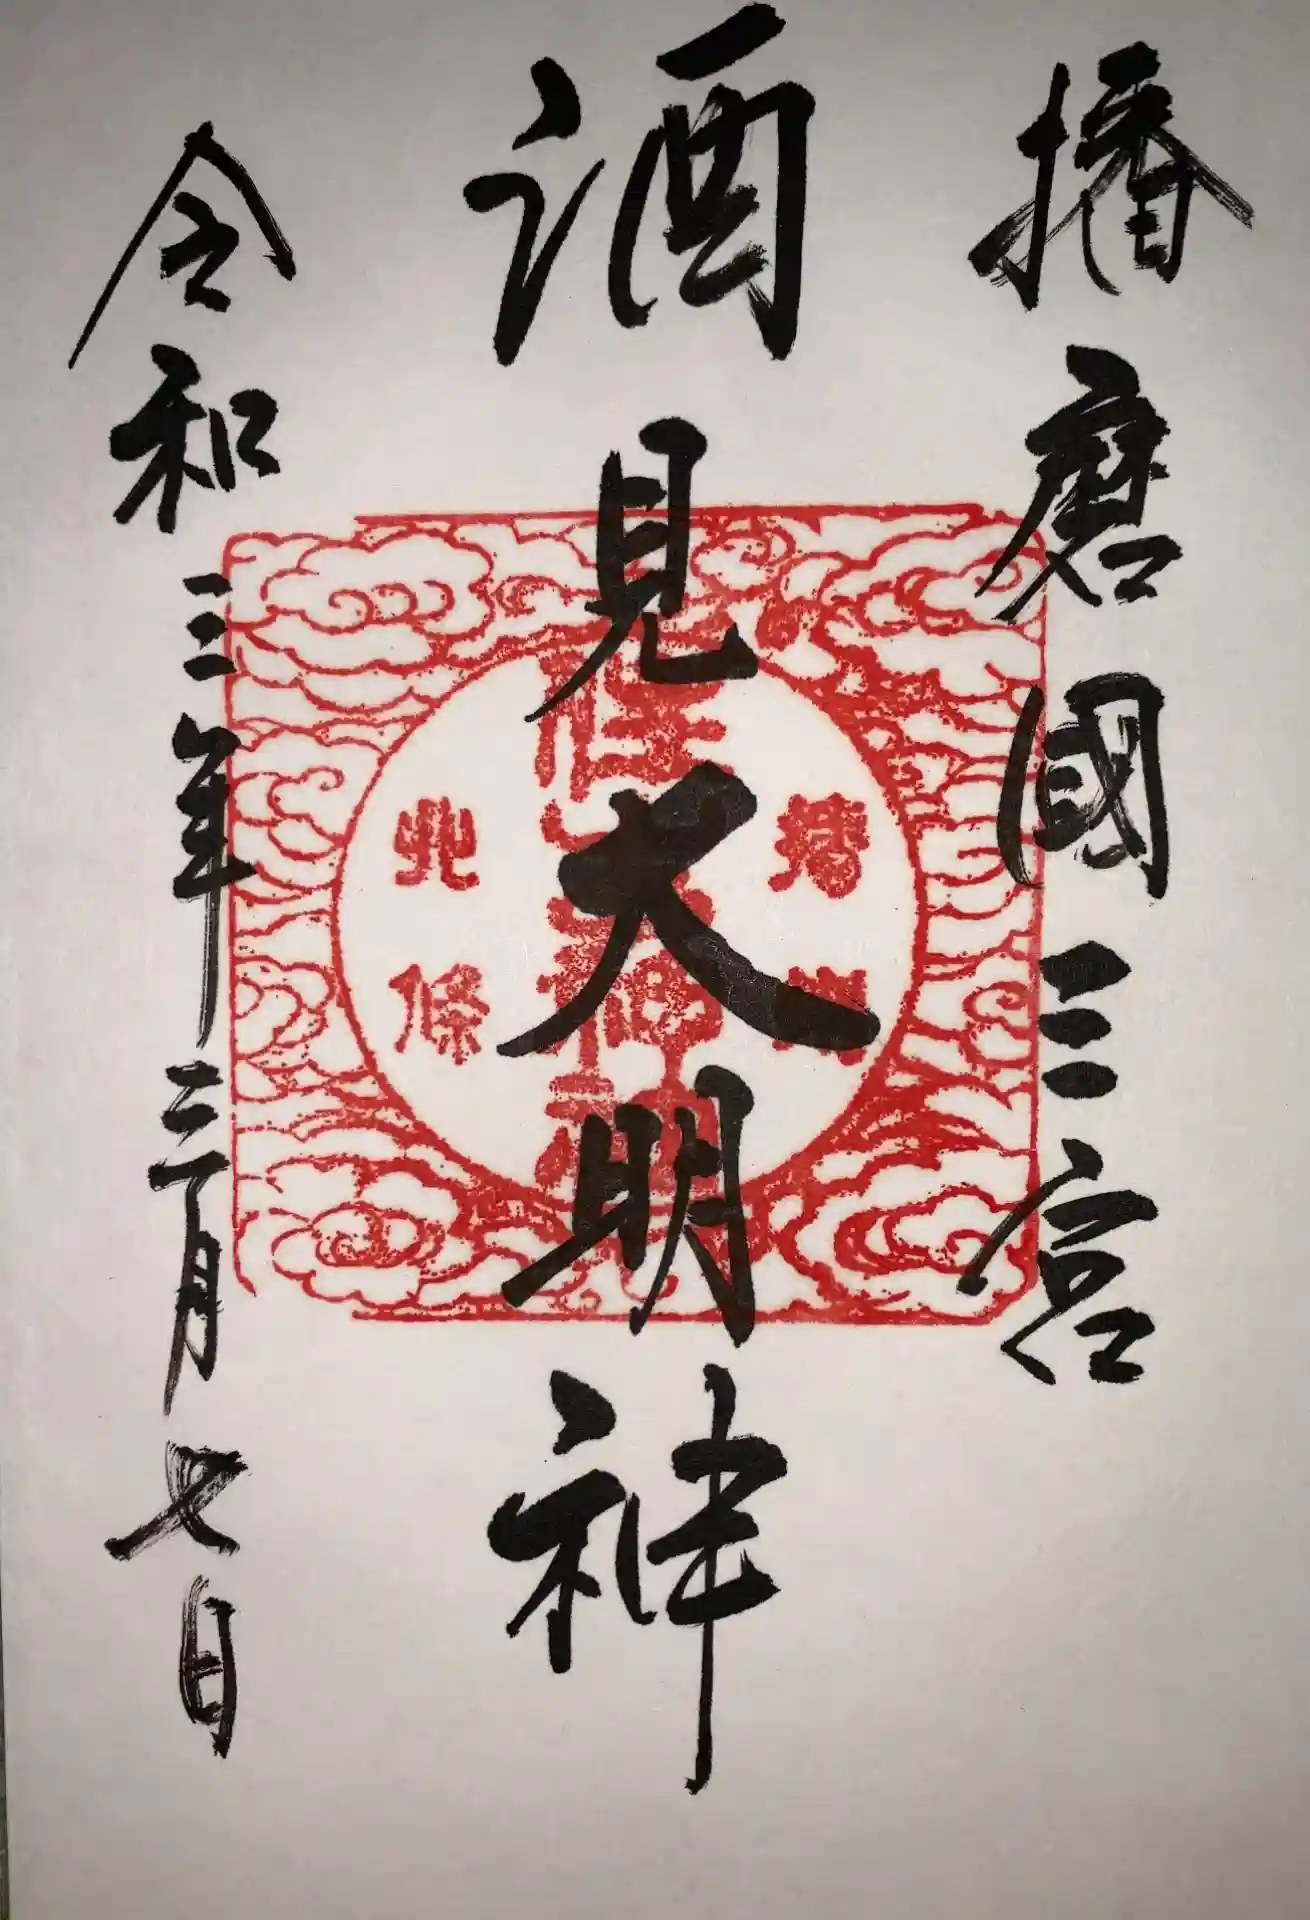 播磨國三宮
酒見大明神
令和三年三月七日
播州
北條